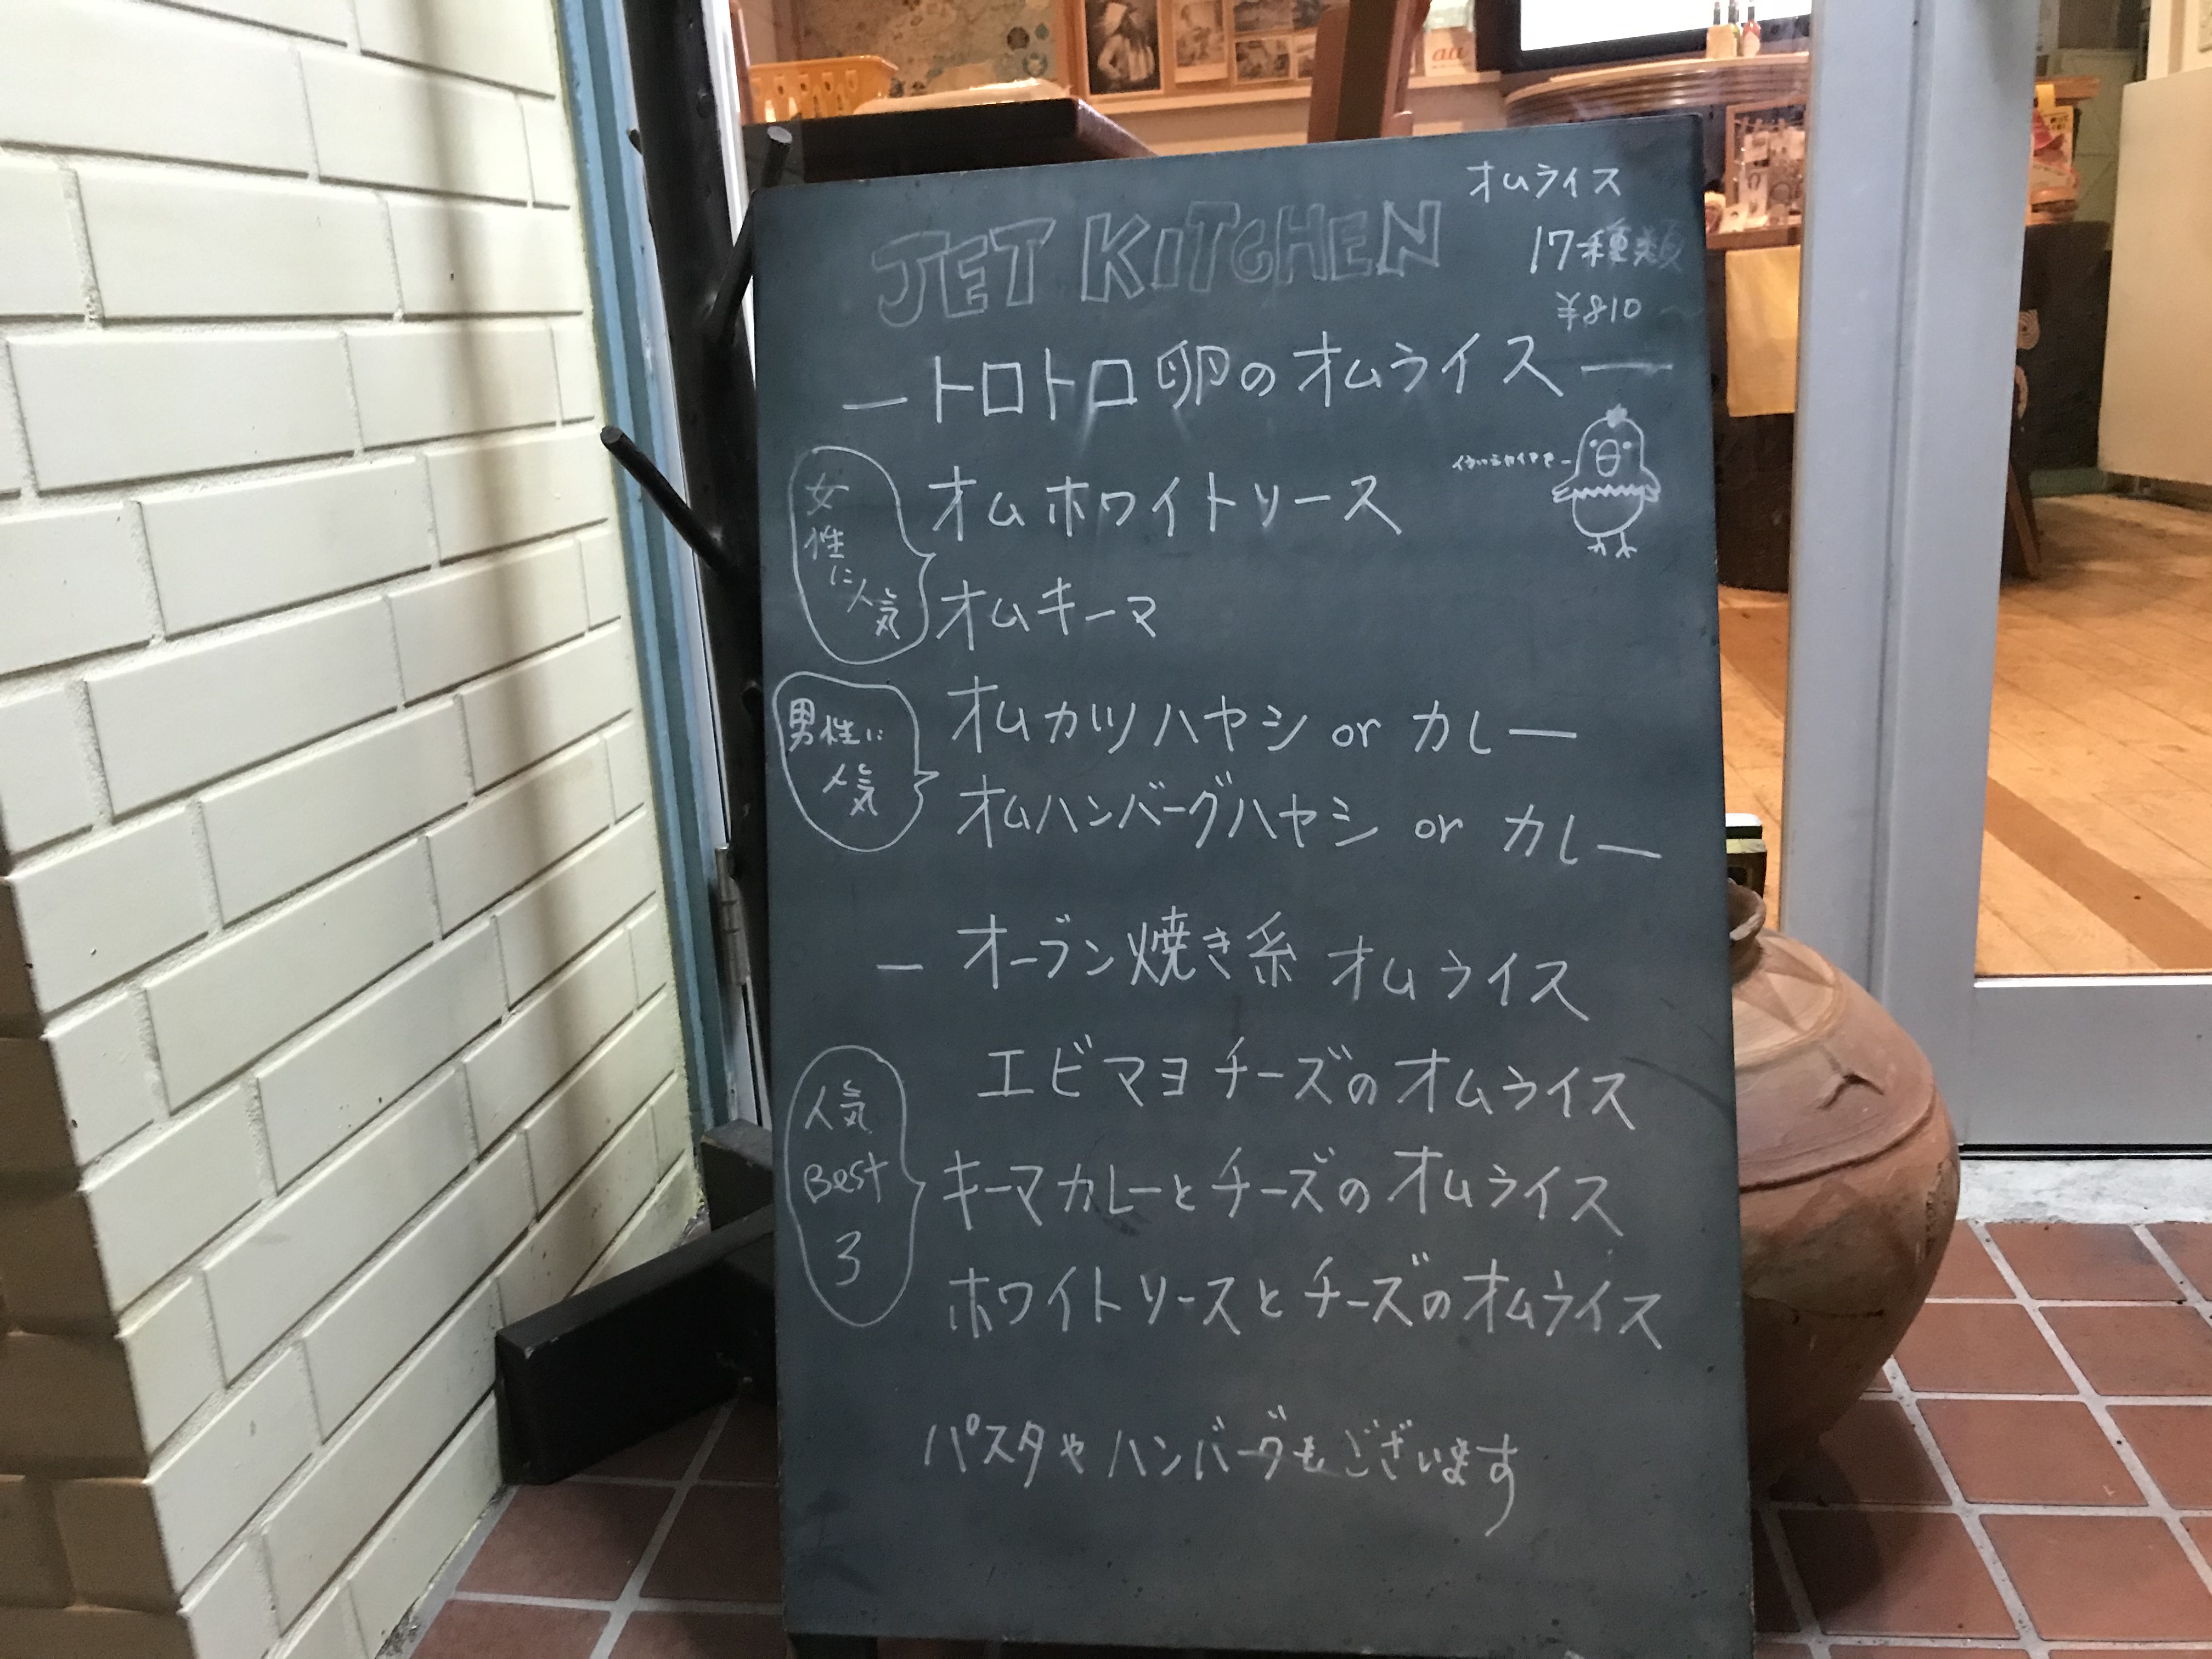 オムライス
JET KITCHEN
17種類
¥810 〜
— トロトロ卵のオムライス —
女性に人気
オムホワイトソース
オムキーマ
男性に人気
オムカツハヤシ or カレー
オムハンバーグハヤシ or カレー
— オーブン焼き系 オムライス
人気 Best 3
エビマヨチーズのオムライス
キーマカレーとチーズのオムライス
ホワイトソースとチーズのオムライス
パスタやハンバーグもございます
au